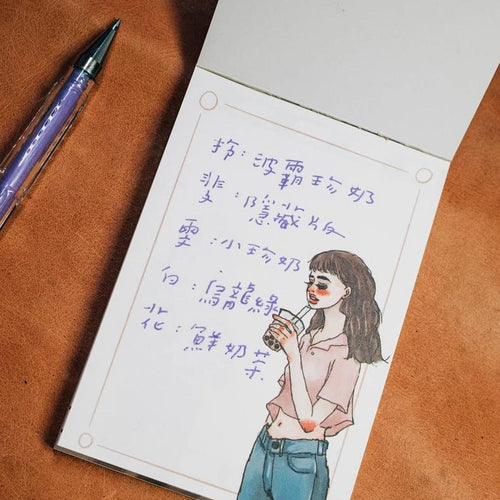 鈴：波霸珍奶
斐：隱藏版
雯：小珍奶
白：烏龍綠
花：鮮奶茶